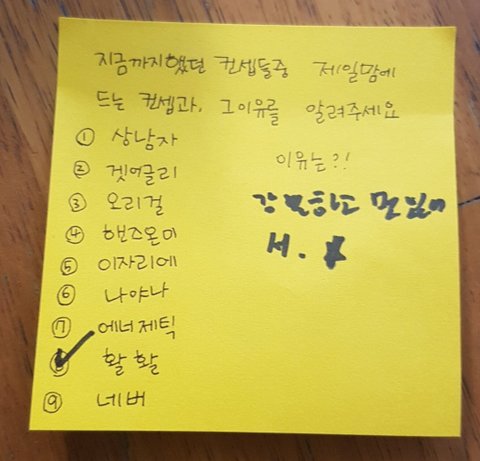 지금까지했던 컨셉들중 제일맘에
드는 컨셉과, 그이유를 알려주세요
① 상남자
② 겟어글리
③ 오리걸
④ 핸즈온미
⑤ 이자리에
⑥ 나야나
⑦ 에너제틱
⑧ 활활
⑨ 네버
이유는?!
강렬하고 멋있어
서.